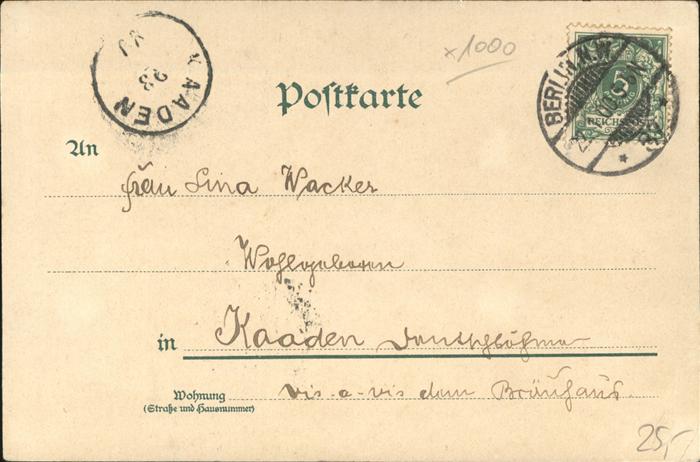 x1000
Postkarte
KAADEN
23
BERLIN N.W.
5
REICHSPOST
An
Frau Lina Wacker
Wohlgeboren
in Kaaden Deutschböhmen
Wohnung
(Straße und Hausnummer)
vis-a-vis dem Bräuhaus.
25,-